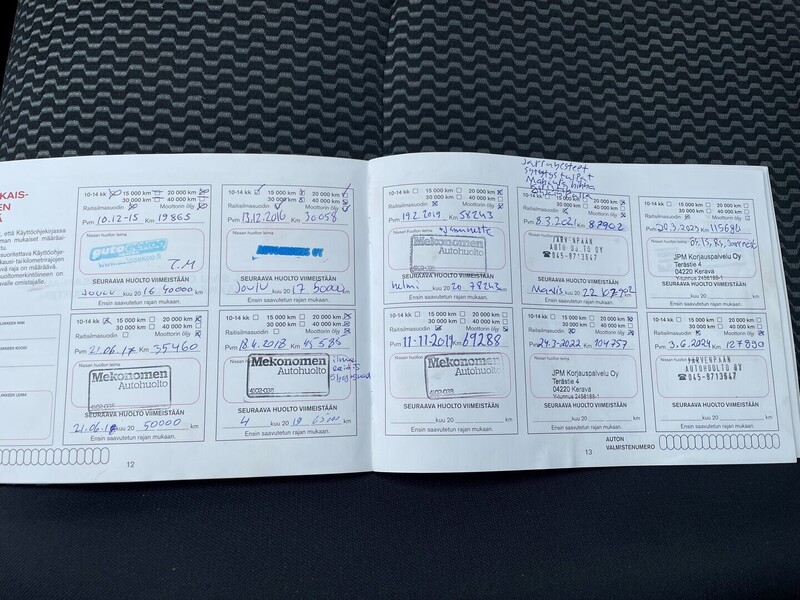 KAIS-
EN
Ä
, että Käyttöohjekirjassa
man mukaiset määräai-
suoritettava Käyttöohje-
kausi- tai kilometrirajojen
vä raja on määräävä.
huoltomerkintöineen on
avalle omistajalle.
10-14 kk 15 000 km 20 000 km
30 000 km 40 000 km
Raitisilmasuodin Moottorin öljy
Pvm 10.12-15 Km 19865
Nissan huollon leima
T.M
SEURAAVA HUOLTO VIIMEISTÄÄN
Joulu kuu 20 16 40000 km
Ensin saavutetun rajan mukaan.
10-14 kk 15 000 km 20 000 km
30 000 km 40 000 km
Raitisilmasuodin Moottorin öljy
Pvm 13.12.2016 Km 30058
Nissan huollon leima
SEURAAVA HUOLTO VIIMEISTÄÄN
Joulu kuu 20 17 50000 km
Ensin saavutetun rajan mukaan.
10-14 kk 15 000 km 20 000 km
30 000 km 40 000 km
Raitisilmasuodin Moottorin öljy
Pvm 21.06.17 Km 35460
Nissan huollon leima
Mekonomen
Autohuolto
SEURAAVA HUOLTO VIIMEISTÄÄN
kuu 20 50000 km
Ensin saavutetun rajan mukaan.
10-14 kk 15 000 km 20 000 km
30 000 km 40 000 km
Raitisilmasuodin Moottorin öljy
Pvm 18.4.2018 Km 45585
Nissan huollon leima
Mekonomen
Autohuolto
SEURAAVA HUOLTO VIIMEISTÄÄN
4 kuu 20 km
Ensin saavutetun rajan mukaan.
12
10-14 kk 15 000 km 20 000 km
30 000 km 40 000 km
Raitisilmasuodin Moottorin öljy
Pvm 19.2.2019 Km 58243
Nissan huollon leima
Mekonomen
Autohuolto
SEURAAVA HUOLTO VIIMEISTÄÄN
helmi kuu 20 20 78243 km
Ensin saavutetun rajan mukaan.
Jarrunesteet
10-14 kk 15 000 km 20 000 km
30 000 km 40 000 km
Raitisilmasuodin Moottorin öljy
Pvm 8.3.2021 Km 87902
Nissan huollon leima
JÄRVENPÄÄN
AUTOHUOLTO OY
☎045-8713647
SEURAAVA HUOLTO VIIMEISTÄÄN
Maalis kuu 20 22 107902 km
Ensin saavutetun rajan mukaan.
10-14 kk 15 000 km 20 000 km
30 000 km 40 000 km
Raitisilmasuodin Moottorin öljy
Pvm 30.3.2023 Km 115686
Nissan huollon leima
JPM Korjauspalvelu Oy
Terästie 4
04220 Kerava
Y-tunnus 2456188-1
SEURAAVA HUOLTO VIIMEISTÄÄN
kuu 20 km
Ensin saavutetun rajan mukaan.
10-14 kk 15 000 km 20 000 km
30 000 km 40 000 km
Raitisilmasuodin Moottorin öljy
Pvm 11-11.2019 Km 69288
Nissan huollon leima
Mekonomen
Autohuolto
SEURAAVA HUOLTO VIIMEISTÄÄN
kuu 20 km
Ensin saavutetun rajan mukaan.
10-14 kk 15 000 km 20 000 km
30 000 km 40 000 km
Raitisilmasuodin Moottorin öljy
Pvm 24.3-2022 Km 104757
Nissan huollon leima
JPM Korjauspalvelu Oy
Terästie 4
04220 Kerava
Y-tunnus 2456188-1
SEURAAVA HUOLTO VIIMEISTÄÄN
kuu 20 km
Ensin saavutetun rajan mukaan.
10-14 kk 15 000 km 20 000 km
30 000 km 40 000 km
Raitisilmasuodin Moottorin öljy
Pvm 3.6.2024 Km 127890
Nissan huollon leima
JÄRVENPÄÄN
AUTOHUOLTO OY
☎045-8713647
SEURAAVA HUOLTO VIIMEISTÄÄN
kuu 20 km
Ensin saavutetun rajan mukaan.
13
AUTON
VALMISTENUMERO